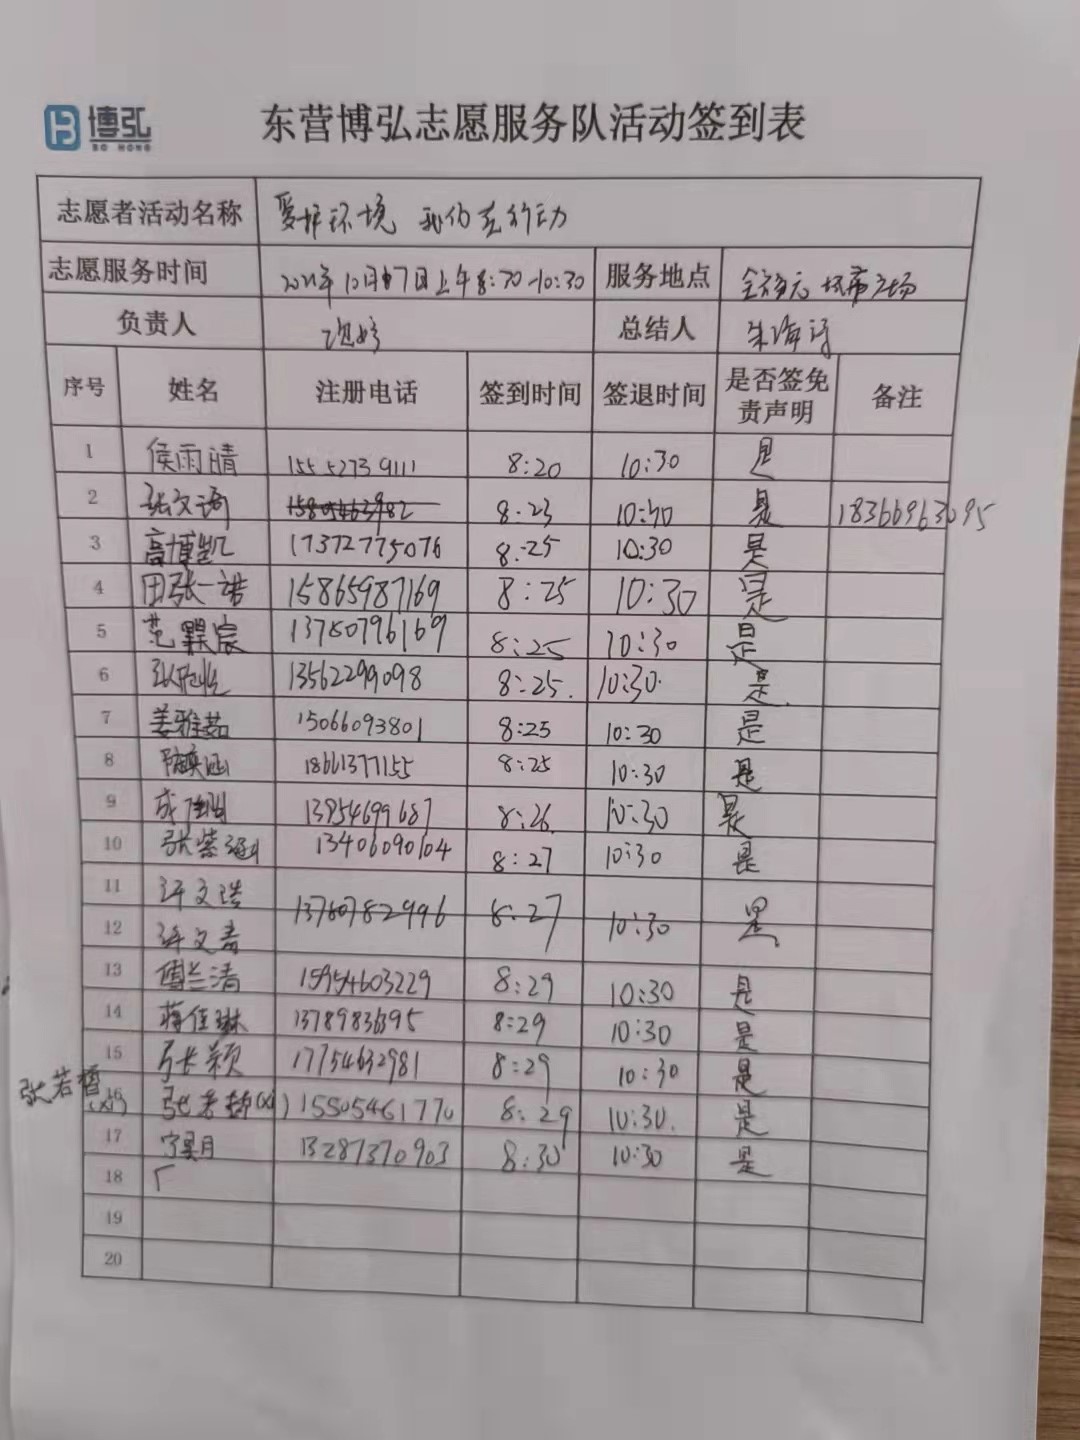 博弘
BO HONG
东营博弘志愿服务队活动签到表
志愿者活动名称 爱护环境 我们在行动
志愿服务时间 10月17日上午8:30-10:30 服务地点
负责人 总结人 朱海
序号 姓名 注册电话 签到时间 签退时间 是否签免责声明 备注
1 侯雨晴 15552739111 8:20 10:30 是
2 张文 8:23 10:30 是 18366963695
3 高博凯 17372775076 8:25 10:30 是
4 田张一诺 15865987169 8:25 10:30 是
5 范 宸 8:25 10:30 是
6 13562299098 8:25. 10:30. 是.
7 姜雅茹 15066093801 8:25 10:30 是
8 18661377155 8:25 10:30 是
9 成 13954699687 8:26. 10:30 是
10 张紫涵 13406090104 8:27 10:30 是
11 许文浩 13760782996 8:27 10:30 是
12 许文
13 傅兰清 15954603229 8:29 10:30 是
14 蒋佳琳 8:29 10:30 是
15 张颖 17754632981 8:29 10:30 是
张若晳(xī) 16 张若 (xī) 15505461770 8:29 10:30. 是
17 宁昊月 13287370903 8:30 10:30 是
18
19
20